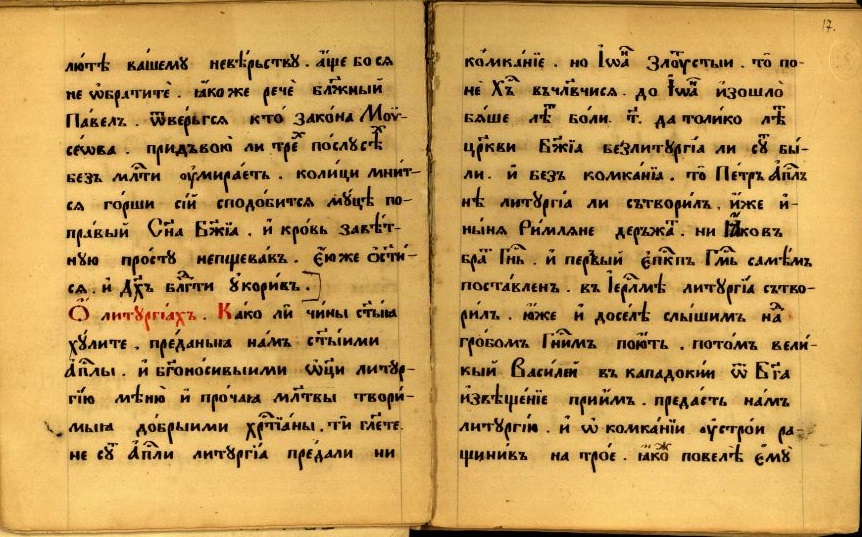 лю́тѣ ва́шему неве́рьству . а́ще бо ся
не ѡ҆братитѐ . ꙗ҆́ко же речѐ бл҃же́нный
Па́велъ . ѿве́рьгся кто̀ зако́на Моѵ҆-
се́ѡва . при́двою̀ ли тре́х по́слусѣ́х
безъ мл҃ти ᲂу҆мира́етъ . коли́ци мни́т-
ся го́рши сі́й сподо́бится му́цѣ по-
пра́вый Сн҃а Бж҃їа . и҆ кро́вь завѣ́т-
ную про́сту непщева́въ . е҆́ю же ѡ҆ст҃и́-
ся . и҆ Дх҃ъ бл҃гти ᲂу҆кори́въ .
Ѡ҆ литургі́ахъ . Ка́ко ли̑ чи́ны ст҃ы́ѧ
ху́лите , пре́даныѧ на́мъ ст҃ы́ими
А҆п҃лы . и҆ бг҃оно́сивыими ѻ҆ц҃и литур-
гі́ю мѣню̀ и҆ про́чаѧ мл҃твы твори́-
мыѧ до́брыими хр҃тїа́ны . ти̑ гл҃ете
не су́т А҆п҃ли литургі́а пре́дали ни
17.
ко́мканїе . но І҆ѡа́н Злᲂу́стыи . то̀ по-
нѐ Х҃ъ въчл҃вчися . до І҆ѡа́н и҆зошло̀
бя́ше лѣ́т бо́ли . т҃ . да то́лико лѣ́т
цр҃кви Бж҃їа безлитургі́а ли су́т бы́-
ли . и҆ безъ комка́нїа . то̀ Пе́тръ А҆п҃лъ
нѣ̀ литургі́а ли сътвори́лъ . и҆́же и҆
ны́ня Ри́мляне держа́т . ни Іа́ковъ
бра́т Гн҃ь . и҆ пе́рвый е҆п҃кпъ Гм҃ь самѣ́мъ
поста́вленъ . въ І҆ерл҃мѣ литургі́а сътво-
ри́лъ . ю҆́же и҆ досе́лѣ слы́шимъ на́д
гро́бомъ Гн҃имъ пою́ть . пото́мъ вели́-
кый Васи́лей въ кападоки́и ѿ Бг҃а
и҆звѣще́нїе прии́мъ . преда́сть на́мъ
литургі́ю . и҆ ѡ҆ комка́нїи ᲂу҆стро́и ра-
щини́въ на тро́е . ꙗ҆́кож повелѣ̀ е҆мꙋ̀